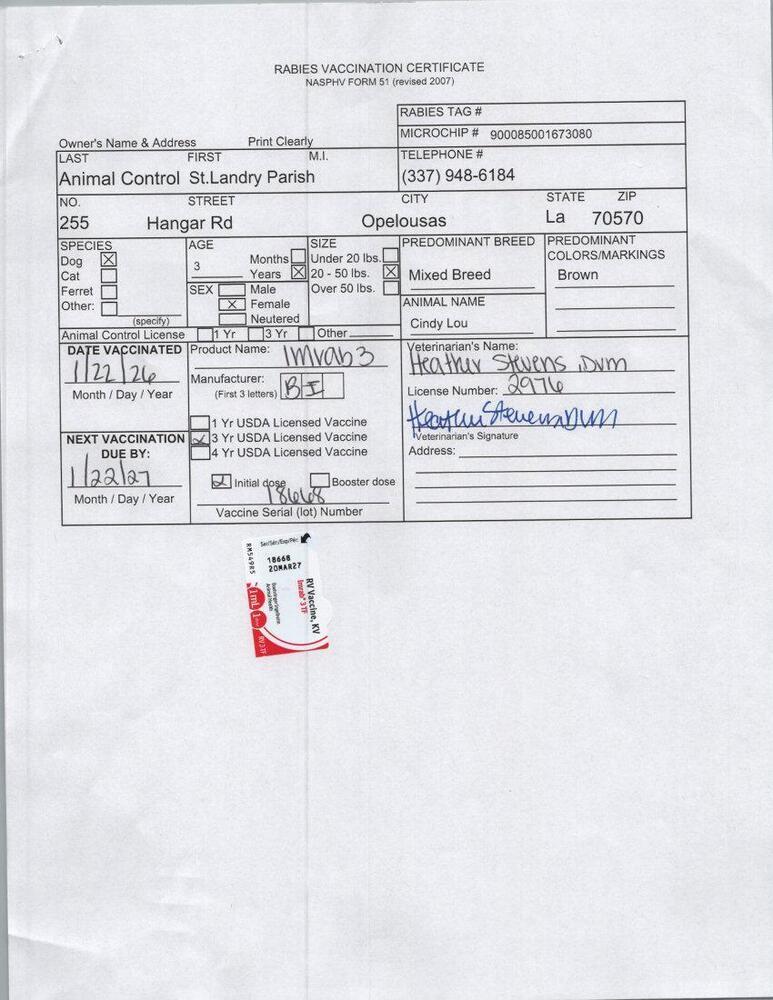 RABIES VACCINATION CERTIFICATE
NASPHV FORM 51 (revised 2007)
RABIES TAG #
MICROCHIP # 900085001673080
Owner's Name & Address Print Clearly
LAST FIRST M.I. TELEPHONE #
Animal Control St.Landry Parish (337) 948-6184
NO. STREET CITY STATE ZIP
255 Hangar Rd Opelousas La 70570
SPECIES AGE SIZE PREDOMINANT BREED PREDOMINANT
COLORS/MARKINGS
Dog X Months Under 20 lbs.
Cat 3 Years X 20 - 50 lbs. X Mixed Breed Brown
Ferret SEX Male Over 50 lbs.
Other: X Female ANIMAL NAME
(specify) Neutered Cindy Lou
Animal Control License 1 Yr 3 Yr Other
DATE VACCINATED Product Name: Imrab 3 Veterinarian's Name:
1/22/26 Heather Stevens, DVM
Month / Day / Year Manufacturer: BI License Number: 2976
(First 3 letters)
Heather Stevens DVM
1 Yr USDA Licensed Vaccine Veterinarian's Signature
NEXT VACCINATION 3 Yr USDA Licensed Vaccine
DUE BY: 4 Yr USDA Licensed Vaccine Address:
1/22/27 Initial dose Booster dose
Month / Day / Year 18668
Vaccine Serial (lot) Number
Ser/Sér/Exp/Pér:
18668
20MAR27
RM549R5
RV Vaccine, KV
Imrab® 3 TF
Boehringer Ingelheim
Animal Health
1 mL 1
RV 3 TF